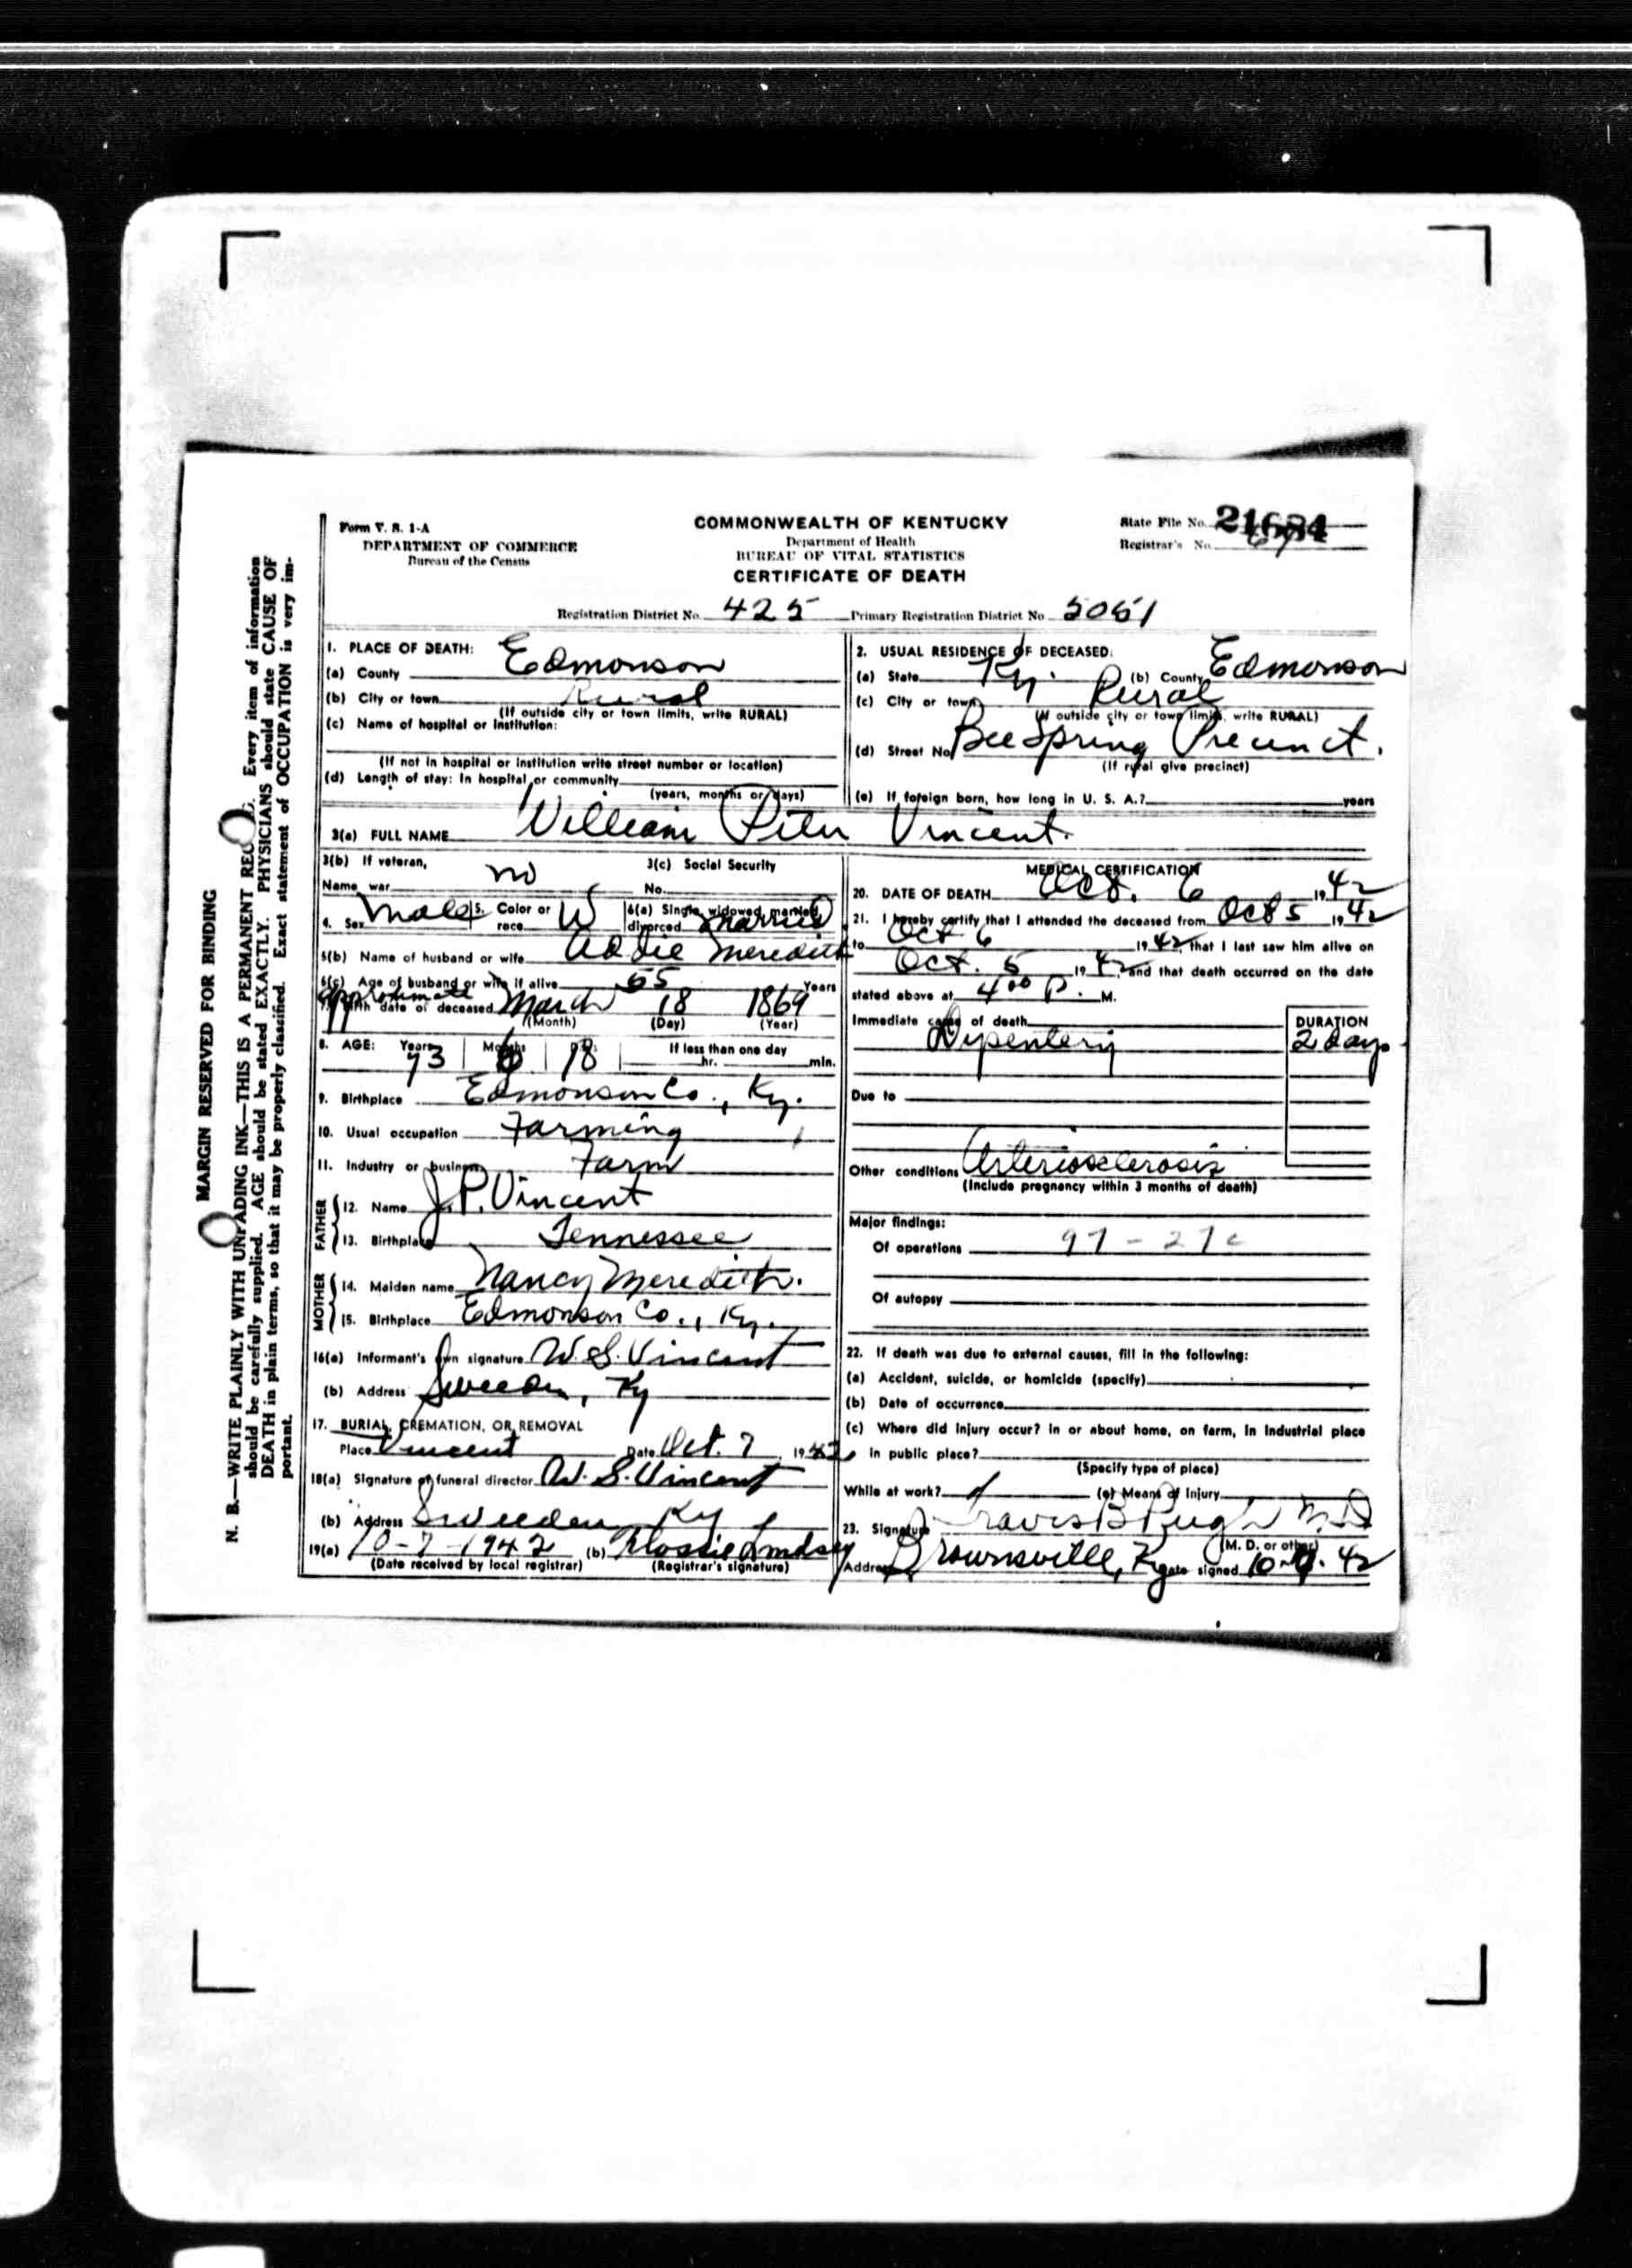 Form V. S. 1-A
DEPARTMENT OF COMMERCE
Bureau of the Census
COMMONWEALTH OF KENTUCKY
Department of Health
BUREAU OF VITAL STATISTICS
CERTIFICATE OF DEATH
State File No. 21684
Registrar's No. 67
Registration District No. 425 Primary Registration District No. 5051
MARGIN RESERVED FOR BINDING
N. B.—WRITE PLAINLY WITH UNFADING INK—THIS IS A PERMANENT RECORD. Every item of information
should be carefully supplied. AGE should be stated EXACTLY. PHYSICIANS should state CAUSE OF
DEATH in plain terms, so that it may be properly classified. Exact statement of OCCUPATION is very im-
portant.
1. PLACE OF DEATH:
(a) County Edmonson
(b) City or town Rural
(If outside city or town limits, write RURAL)
(c) Name of hospital or institution:
(If not in hospital or institution write street number or location)
(d) Length of stay: In hospital or community
(years, months or days)
2. USUAL RESIDENCE OF DECEASED:
(a) State Ky. (b) County Edmonson
(c) City or town Rural
(If outside city or town limits, write RURAL)
(d) Street No. Bee Spring Precinct.
(If rural give precinct)
(e) If foreign born, how long in U. S. A.? years
3(a) FULL NAME William Peter Vincent.
3(b) If veteran, 3(c) Social Security
Name war no No.
4. Sex Male 5. Color or race W 6(a) Single, widowed, married, divorced Married
6(b) Name of husband or wife Addie Meredith
6(c) Age of husband or wife if alive 65 Years
approximate
7. Birth date of deceased March 18 1869
(Month) (Day) (Year)
8. AGE: Years Months Days If less than one day
73 6 18 hr. min.
9. Birthplace Edmonson Co., Ky.
10. Usual occupation Farming
11. Industry or business Farm
FATHER
12. Name J.P. Vincent
13. Birthplace Tennessee
MOTHER
14. Maiden name Nancy Meredith.
15. Birthplace Edmonson Co., Ky.
16(a) Informant's own signature W. S. Vincent
(b) Address Sweeden, Ky
17. BURIAL, CREMATION, OR REMOVAL
Place Vincent Date Oct. 7, 1942
18(a) Signature of funeral director W. S. Vincent
(b) Address Sweeden, Ky
19(a) 10-7-1942 (b) Flossie Lindsey
(Date received by local registrar) (Registrar's signature)
MEDICAL CERTIFICATION
20. DATE OF DEATH Oct. 6 1942
21. I hereby certify that I attended the deceased from Oct 5 1942
to Oct 6 1942, that I last saw him alive on
Oct. 5 1942, and that death occurred on the date
stated above at 4 00 P. M.
Immediate cause of death DURATION
Dysentery 2 days
Due to
Other conditions Arteriosclerosis
(Include pregnancy within 3 months of death)
Major findings:
Of operations 97 - 27c
Of autopsy
22. If death was due to external causes, fill in the following:
(a) Accident, suicide, or homicide (specify)
(b) Date of occurrence
(c) Where did injury occur? In or about home, on farm, in industrial place
in public place?
(Specify type of place)
While at work? (e) Means of injury
23. Signature Travis B Pugh M.D
(M. D. or other)
Address Brownsville, Ky Date signed 10-7-42